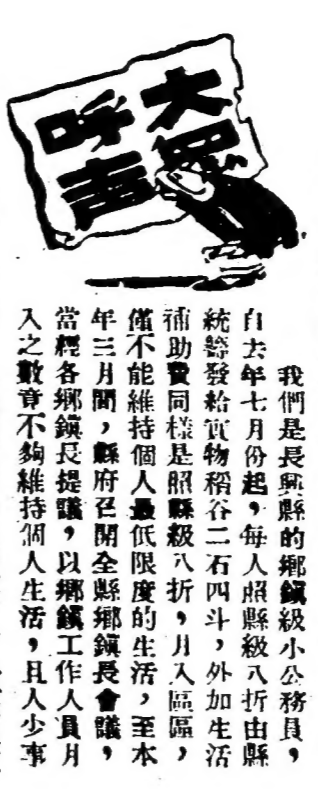 大眾
呼声
我們是長興縣的鄉鎮級小公務員，
自去年七月份起，每人照縣級八折由縣
統籌發給實物稻谷二石四斗，外加生活
補助費同樣是照縣級八折，月入區區，
僅不能維持個人最低限度的生活，至本
年三月間，縣府召開全縣鄉鎮長會議，
當經各鄉鎮長提議，以鄉鎮工作人員月
入之數竟不夠維持個人生活，且人少事